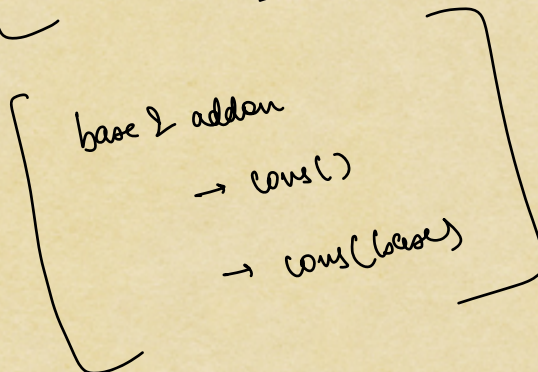 base & addon
→ cons()
→ cons(base)